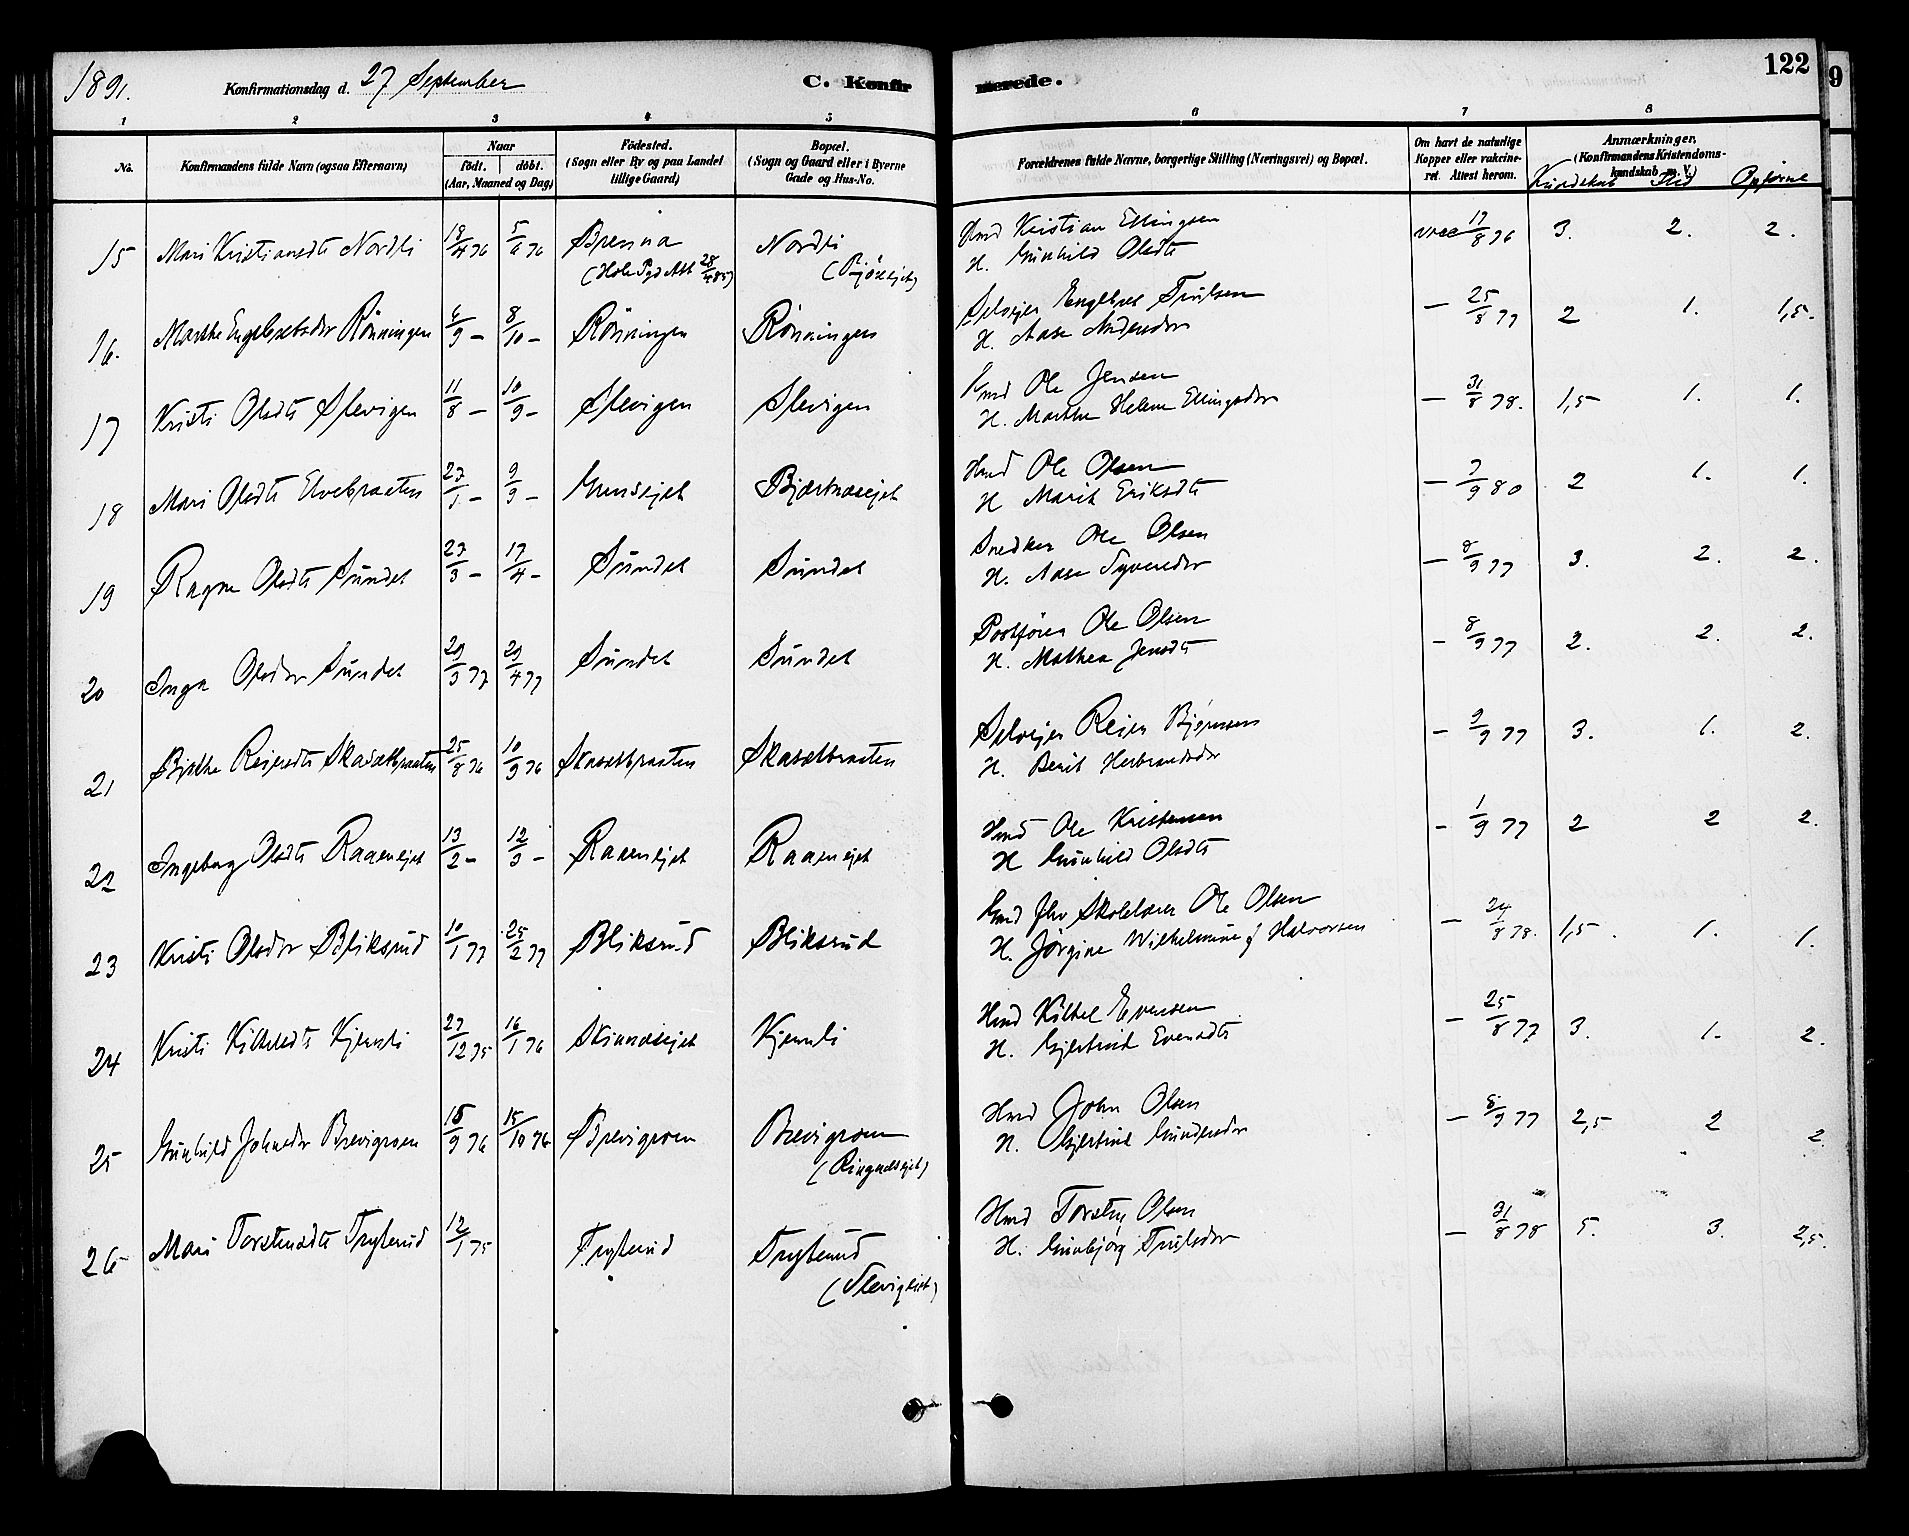 1891.
Konfirmationsdag d. 27 September
C. Konfirmerede.
122
9
1 2 3 4 5 6 7 8
No.
Konfirmandens fulde Navn (ogsaa Efternavn)
Naar
födt. döbt.
(Aar, Maaned og Dag)
Födested.
(Sogn eller By og paa Landet
tillige Gaard)
Bopæl.
(Sogn og Gaard eller i Byerne
Gade og Hus-No.
Forældrenes fulde Navne, borgerlige Stilling (Næringsvei) og Bopæl.
Om havt de naturlige
Kopper eller vakcine-
ret. Attest herom.
Anmærkninger.
(Konfirmandens Kristendoms-
kundskab m. V.)
Kundskab Flid Opførsel
15 Mari Kristiansdt Nordli 18/4 76 5/6 76 Nordli
Hmd Kristian Ellingsen
H. Gunhild Olsdt
vacc 17/8 76 3. 2. 2.
16. Marthe Engebretsdtr Rönningen 6/9 – 8/10 – Rönningen Rönningen
Selvejer Engebret Trulsen
H. Aase Andersdtr
– 25/8 77 2 1. 1,5.
17 Kristi Olsdt Slevigen 11/8 – 10/9 – Slevigen Slevigen
Hmd Ole Jensen
H. Marthe Helene Ellingsdtr
– 31/8 78. 1,5 1. 1.
18 Mari Olsdt Elvebraaten 27/1 – 9/9 – Bjertnæsejet
Hmd Ole Olsen
H Marit Eriksdt
– 7/9 80 2 1. 1.
19 Ragne Olsdt Sundet 27/3 – 17/4 – Sundet Sundet
Snedker Ole Olsen
H. Aase Syversdtr
– 8/9 77 3. 2. 2.
20 Inga Olsdtr Sundet 20/3 77 29/4 77 Sundet Sundet
Postfører Ole Olsen
H. Mathea Jensdt
– 8/9 77 2. 2. 2.
21 Birthe Reiersdt Skasætbraaten 25/8 76 10/9 76 Skasætbraaten Skasætbraaten
Selvejer Reier Bjørnsen
H. Berit Herbrandsdtr
– 9/9 77 3. 1. 2.
22 Ingeborg Olsdt Raaenejet 13/2 – 12/3 – Raaenejet Raaenejet
Hmd Ole Kristensen
H Gunhild Olsdt
– 1/9 77 2 2 2.
23 Kristi Olsdtr Bliksrud 10/1 77 25/2 77 Bliksrud Bliksrud
Skolelærer Ole Olsen
H. Jørgine Wilhelmine f Halvorsen
– 24/8 78. 1,5. 1. 1.
24 Kristi Kittelsdt Kjemli 27/12 75 16/1 76 Kjemli
Hmd Kittel Evensen
H. Gjertrud Evensdt
– 25/8 77 3. 1. 2.
25 Gunhild Johnsdtr Brevigroen 15/9 76 15/10 76 Brevigroen Brevigroen
(Ringnesejet)
Hmd John Olsen
H. Gjertrud Gundersdtr
– 8/9 77 2,5 2 2.
26 Mari Torstensdt Tryterud 12/1 75 Tryterud Tryterud
(Slevigejet)
Hmd Torsten Olsen
H. Gunbjørg Trulsdtr
– 31/8 78 5. 3. 2,5.